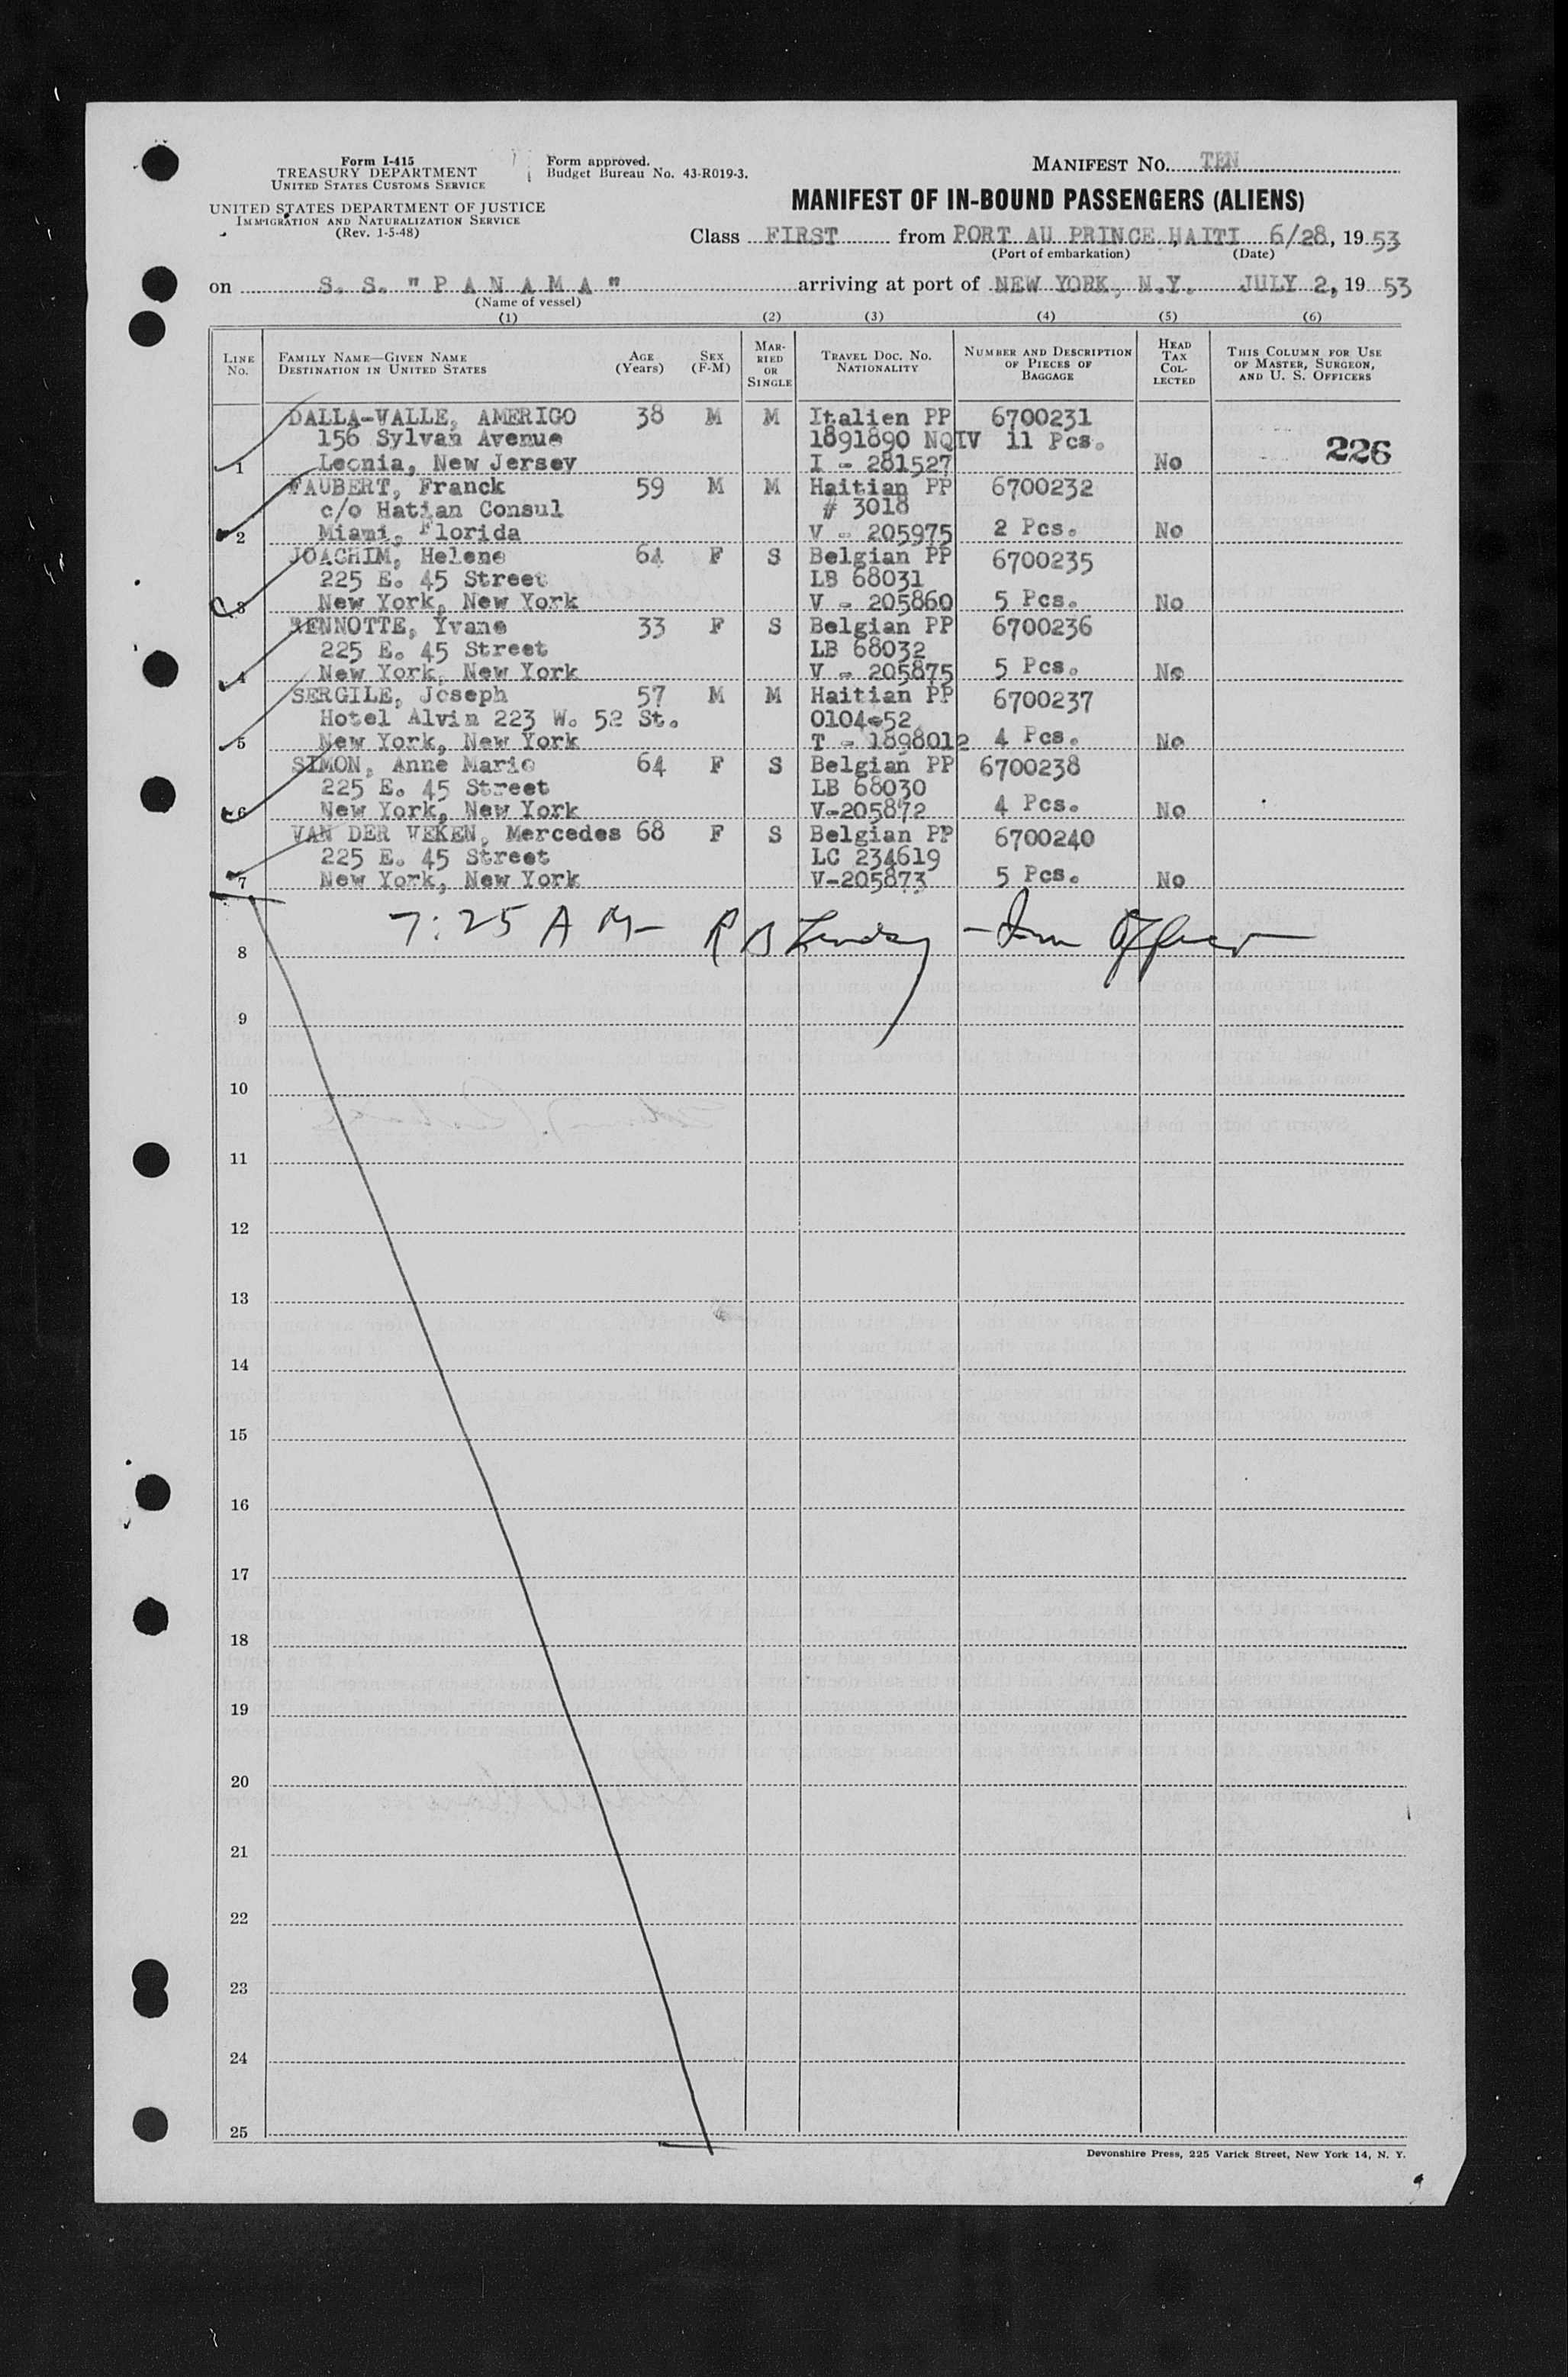 Form I-415
TREASURY DEPARTMENT
UNITED STATES CUSTOMS SERVICE
UNITED STATES DEPARTMENT OF JUSTICE
IMMIGRATION AND NATURALIZATION SERVICE
(Rev. 1-5-48)
Form approved.
Budget Bureau No. 43-R019-3.
MANIFEST NO. TEN
MANIFEST OF IN-BOUND PASSENGERS (ALIENS)
Class FIRST from PORT AU PRINCE, HAITI 6/28, 19 53
(Port of embarkation) (Date)
on S. S. "P A N A M A" arriving at port of NEW YORK, N.Y. JULY 2, 19 53
(Name of vessel)
(1) (2) (3) (4) (5) (6)
LINE NO.
FAMILY NAME—GIVEN NAME
DESTINATION IN UNITED STATES
AGE (Years)
SEX (F-M)
MARRIED OR SINGLE
TRAVEL DOC. NO. NATIONALITY
NUMBER AND DESCRIPTION OF PIECES OF BAGGAGE
HEAD TAX COLLECTED
THIS COLUMN FOR USE OF MASTER, SURGEON, AND U. S. OFFICERS
DALLA-VALLE, AMERIGO 38 M M Italien PP 6700231
156 Sylvan Avenue 1891890 NQIV 11 Pcs. 226
1 Leonia, New Jersey I - 281527 No
FAUBERT, Franck 59 M M Haitian PP 6700232
c/o Hatian Consul # 3018
2 Miami, Florida V - 205975 2 Pcs. No
JOACHIM, Helene 64 F S Belgian PP 6700235
225 E. 45 Street LB 68031
3 New York, New York V - 205860 5 Pcs. No
RENNOTTE, Yvane 33 F S Belgian PP 6700236
225 E. 45 Street LB 68032
4 New York, New York V - 205875 5 Pcs. No
SERGILE, Joseph 57 M M Haitian PP 6700237
Hotel Alvin 223 W. 52 St. 0104-52
5 New York, New York T - 1898012 4 Pcs. No
SIMON, Anne Marie 64 F S Belgian PP 6700238
225 E. 45 Street LB 68030
6 New York, New York V-205872 4 Pcs. No
VAN DER VEKEN, Mercedes 68 F S Belgian PP 6700240
225 E. 45 Street LC 234619
7 New York, New York V-205873 5 Pcs. No
7:25 A M - R B Lindsay - Imm Officer
8
9
10
11
12
13
14
15
16
17
18
19
20
21
22
23
24
25
Devonshire Press, 225 Varick Street, New York 14, N. Y.